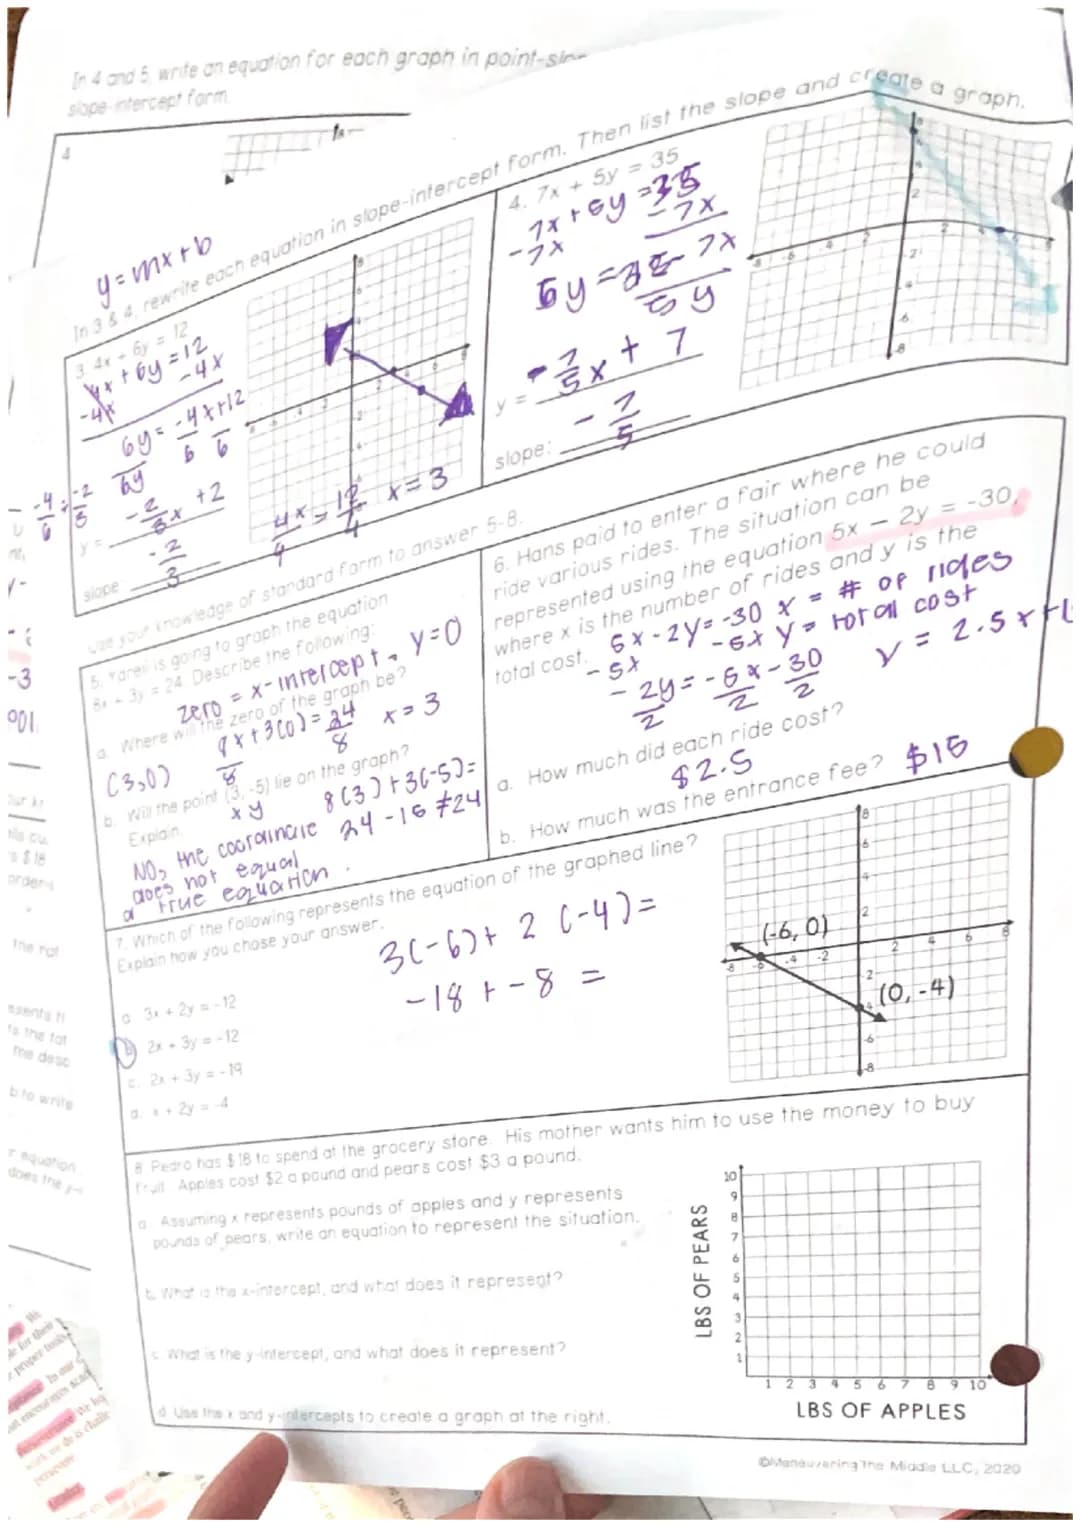 In 4 and 5, write an equation for each graph in point-slop
slope-intercept form.
4
y = mx + b
In 3 & 4, rewrite each equation in slope-intercept form. Then list the slope and create a graph.
3. 4x + 6y = 12
4x + 6y = 12
-4x -4x
6y = -4x + 12
6y 6 6
-4/6 = -2/3
y = -2/3x + 2
slope -2/3
4x/4 = 12/4 x = 3
4. 7x + 5y = 35
7x + 5y = 35
-7x -7x
5y = 35 - 7x
5y
y = -7/5x + 7
slope: -7/5
Use your knowledge of standard form to answer 5-8.
5. Yareli is going to graph the equation
8x + 3y = 24. Describe the following:
zero = x-intercept, y=0
a. Where will the zero of the graph be?
8x + 3(0) = 24
8 8
x = 3
(3,0)
b. Will the point (3, -5) lie on the graph?
x y
Explain.
8(3) + 3(-5) =
24 - 15 ≠ 24
NO, the coordinate
does not equal
a true equation.
6. Hans paid to enter a fair where he could
ride various rides. The situation can be
represented using the equation 5x − 2y = -30,
where x is the number of rides and y is the
total cost.
5x - 2y = -30 x = # of rides
-5x -5x y = total cost
-2y = -5x - 30
2 2 2
y = 2.5x + 1
a. How much did each ride cost?
$2.5
b. How much was the entrance fee? $15
7. Which of the following represents the equation of the graphed line?
Explain how you chose your answer.
3(-6) + 2(-4) =
-18 + -8 =
a. 3x + 2y = -12
b 2x + 3y = -12
c. 2x + 3y = -19
d. x + 2y = -4
(-6, 0)
(0, -4)
8 Pedro has $18 to spend at the grocery store. His mother wants him to use the money to buy
fruit. Apples cost $2 a pound and pears cost $3 a pound.
a. Assuming x represents pounds of apples and y represents
pounds of pears, write an equation to represent the situation.
b. What is the x-intercept, and what does it represent?
c. What is the y-intercept, and what does it represent?
d. Use the x and y-intercepts to create a graph at the right.
LBS OF PEARS
10
9
8
7
6
5
4
3
2
1
1 2 3 4 5 6 7 8 9 10
LBS OF APPLES
©Maneuvering The Middle LLC, 2020